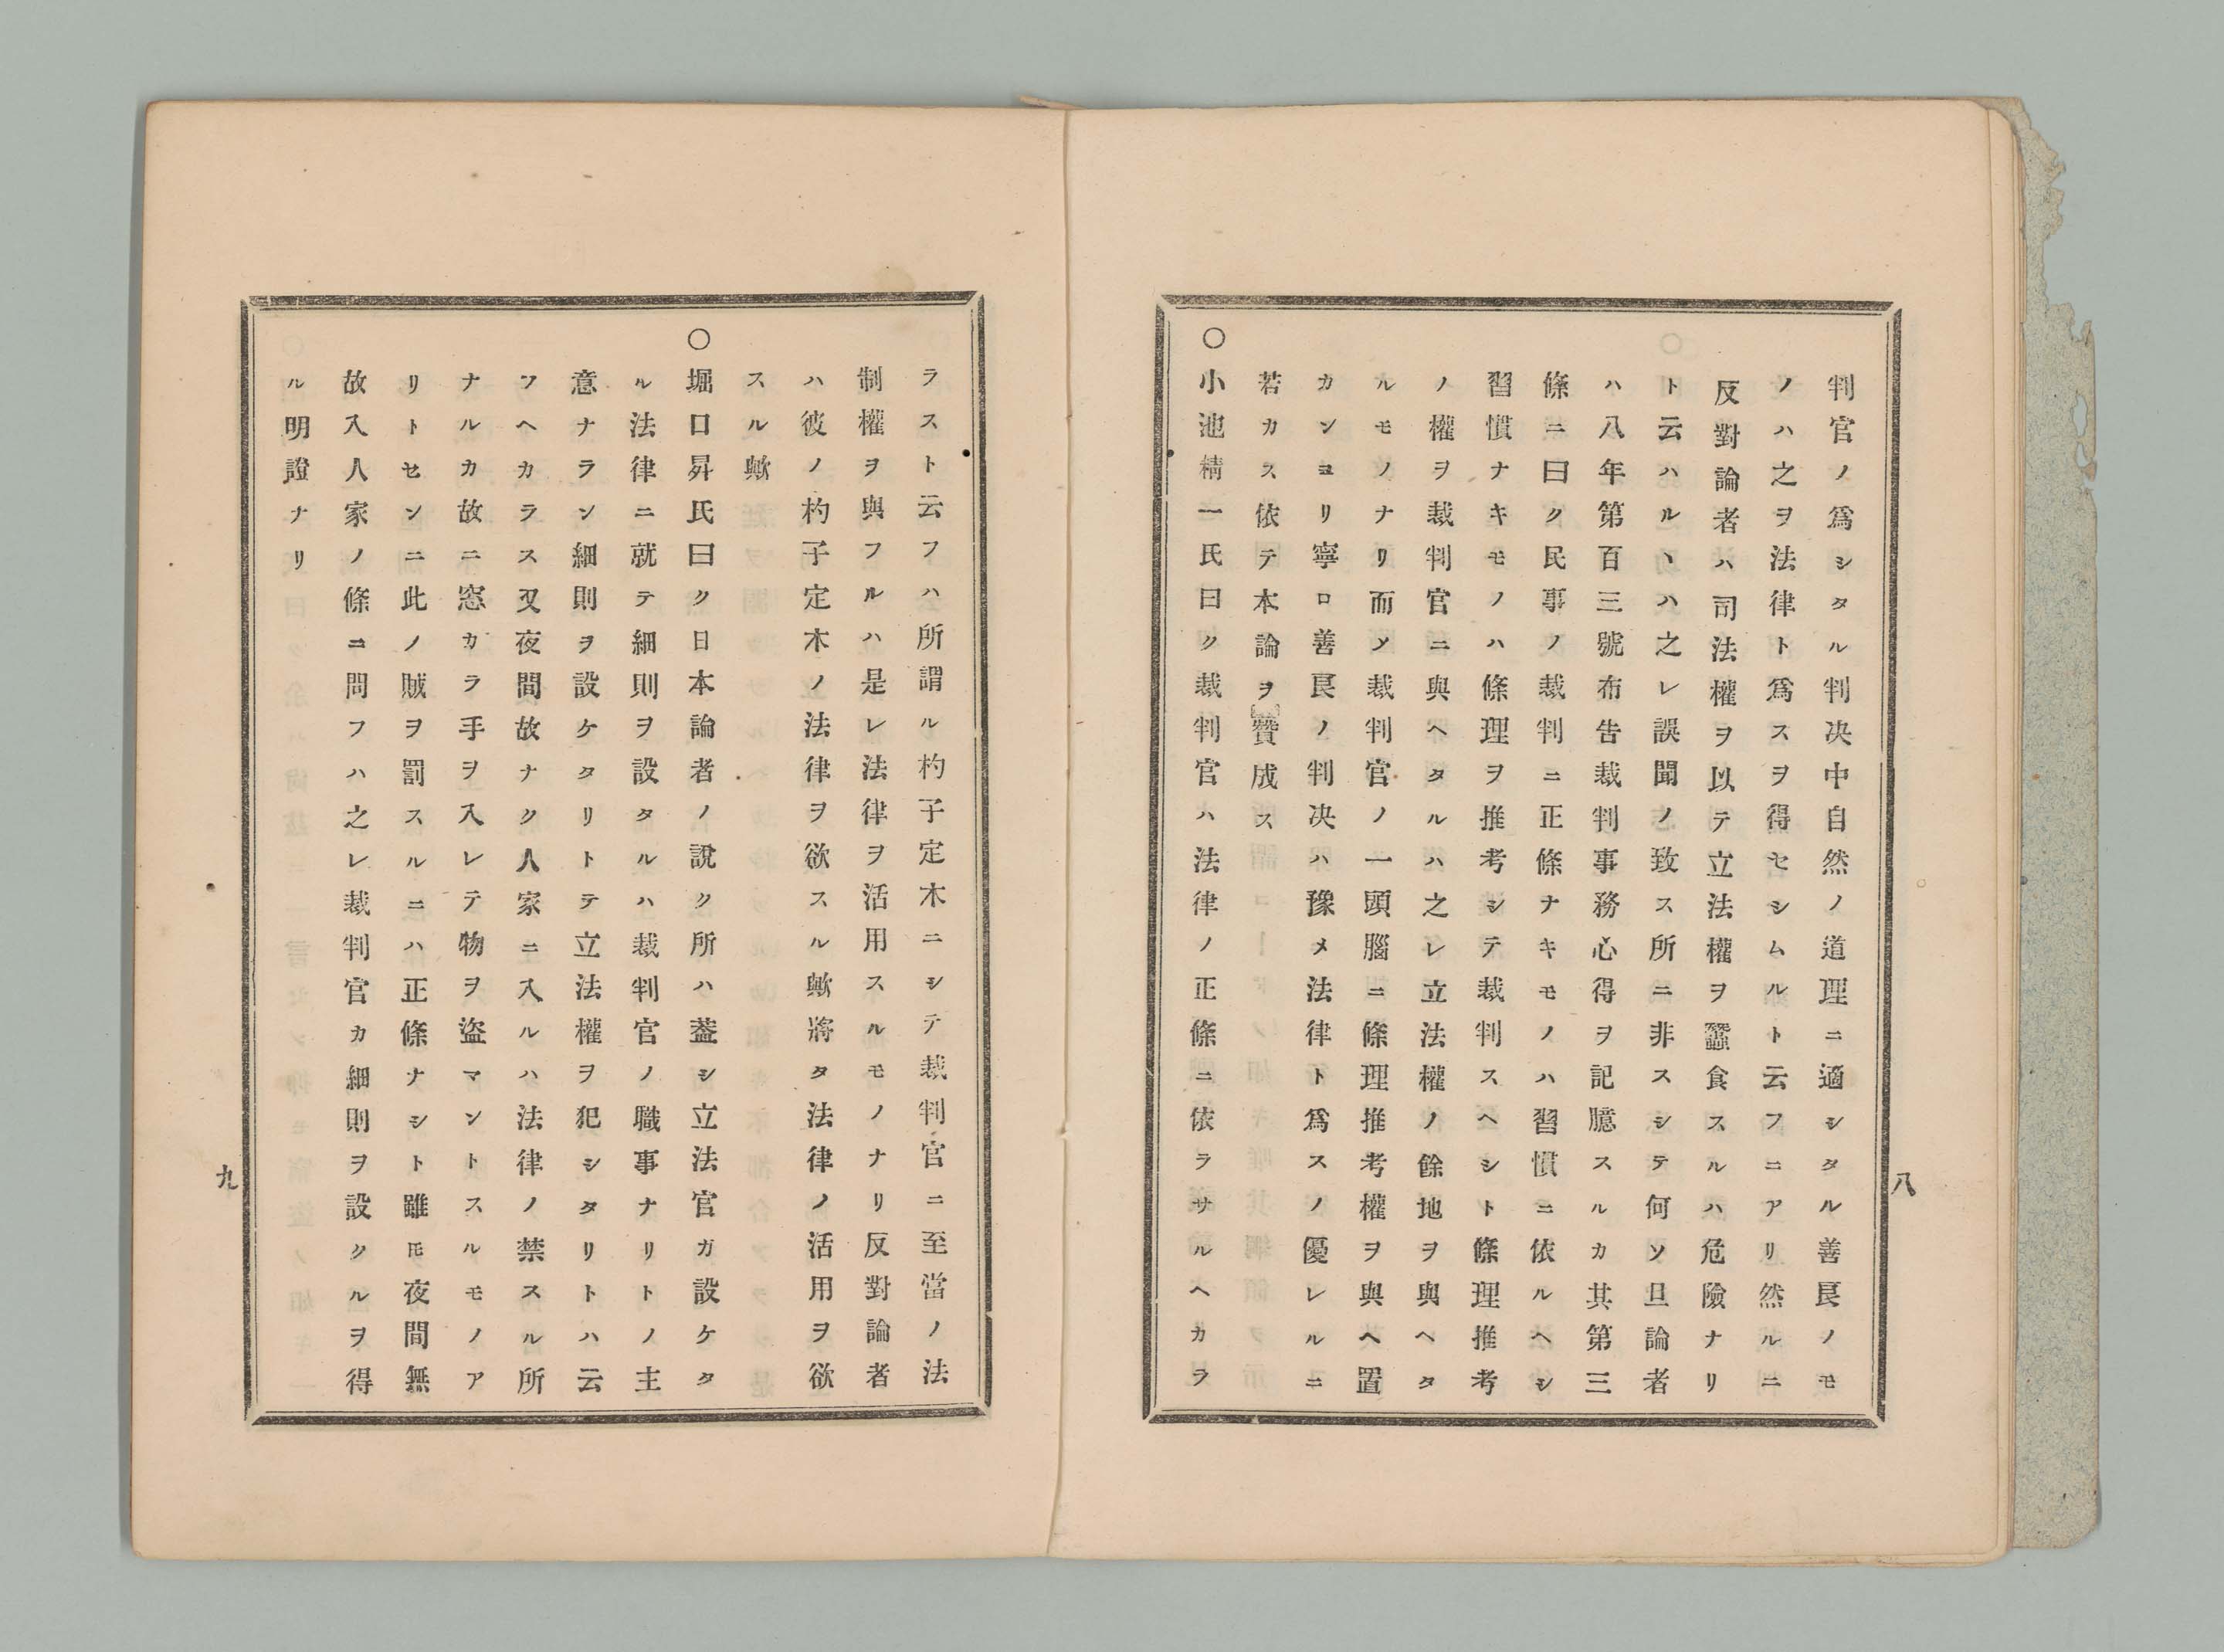 判官ノ爲シタル判决中自然ノ道理ニ適シタル善良ノモ
ノハ之ヲ法律ト爲スヲ得セシムルト云フニアリ然ルニ
反對論者ハ司法權ヲ以テ立法權ヲ蠶食スルハ危險ナリ
ト云ハルヽハ之レ誤聞ノ致ス所ニ非スシテ何ソ且論者
ハ八年第百三號布告裁判事務心得ヲ記臆スルカ其第三
條ニ曰ク民事ノ裁判ニ正條ナキモノハ習慣ニ依ルヘシ
習慣ナキモノハ條理ヲ推考シテ裁判スヘシト條理推考
ノ權ヲ裁判官ニ與ヘタルハ之レ立法權ノ餘地ヲ與ヘタ
ルモノナリ而メ裁判官ノ一頭腦ニ條理推考權ヲ與ヘ置
カンヨリ寧ロ善良ノ判决ハ豫メ法律ト爲スノ優レルニ
若カス依テ本論ヲ贊成ス
○小池精一氏曰ク裁判官ハ法律ノ正條ニ依ラサルヘカラ
八
ラスト云フハ所謂ル杓子定木ニシテ裁判官ニ至當ノ法
制權ヲ與フルハ是レ法律ヲ活用スルモノナリ反對論者
ハ彼ノ杓子定木ノ法律ヲ欲スル歟將タ法律ノ活用ヲ欲
スル歟
○堀口昇氏曰ク日本論者ノ說ク所ハ葢シ立法官ガ設ケタ
ル法律ニ就テ細則ヲ設タルハ裁判官ノ職事ナリトノ主
意ナラン細則ヲ設ケタリトテ立法權ヲ犯シタリトハ云
フヘカラス又夜間故ナク人家ニ入ルハ法律ノ禁スル所
ナルカ故ニ窓カラ手ヲ入レテ物ヲ盗マントスルモノア
リトセンニ此ノ賊ヲ罰スルニハ正條ナシト雖モ夜間無
故入人家ノ條ニ問フハ之レ裁判官カ細則ヲ設クルヲ得
ル明證ナリ
九